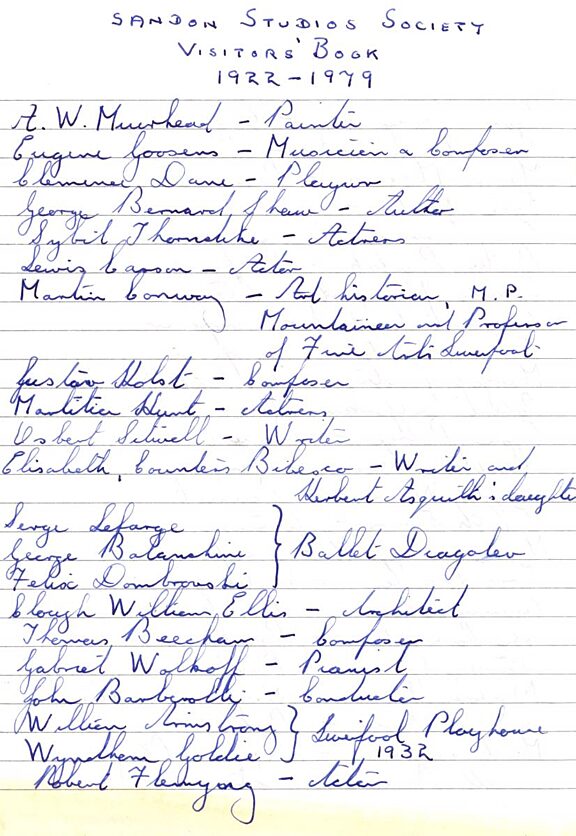 SANDON STUDIOS SOCIETY
VISITORS' BOOK
1922-1979
A. W. Muirhead - Painter
Eugene Goosens - Musician & Composer
Clemence Dane - Playwr
George Bernard Shaw - Author
Sybil Thorndike - Actress
Lewis Casson - Actor
Martin Conway - Art historian, M.P.
Mountaineer and Professor
of Fine Arts Liverpool
Gustav Holst - Composer
Martitia Hunt - Actress
Osbert Sitwell - Writer
Elisabeth, Countess Bibesco - Writer and
Herbert Asquith's daughter
Serge Lefarge
George Balanshine } Ballet Diagalev
Felix Dombrowski
Clough William Ellis - Architect
Thomas Beecham - Composer
Gabriel Wolkoff - Pianist
John Barberolli - Conductor
William Armstrong } Liverpool Playhouse
Wyndham Goldie 1932
Robert Flemyng - Actor